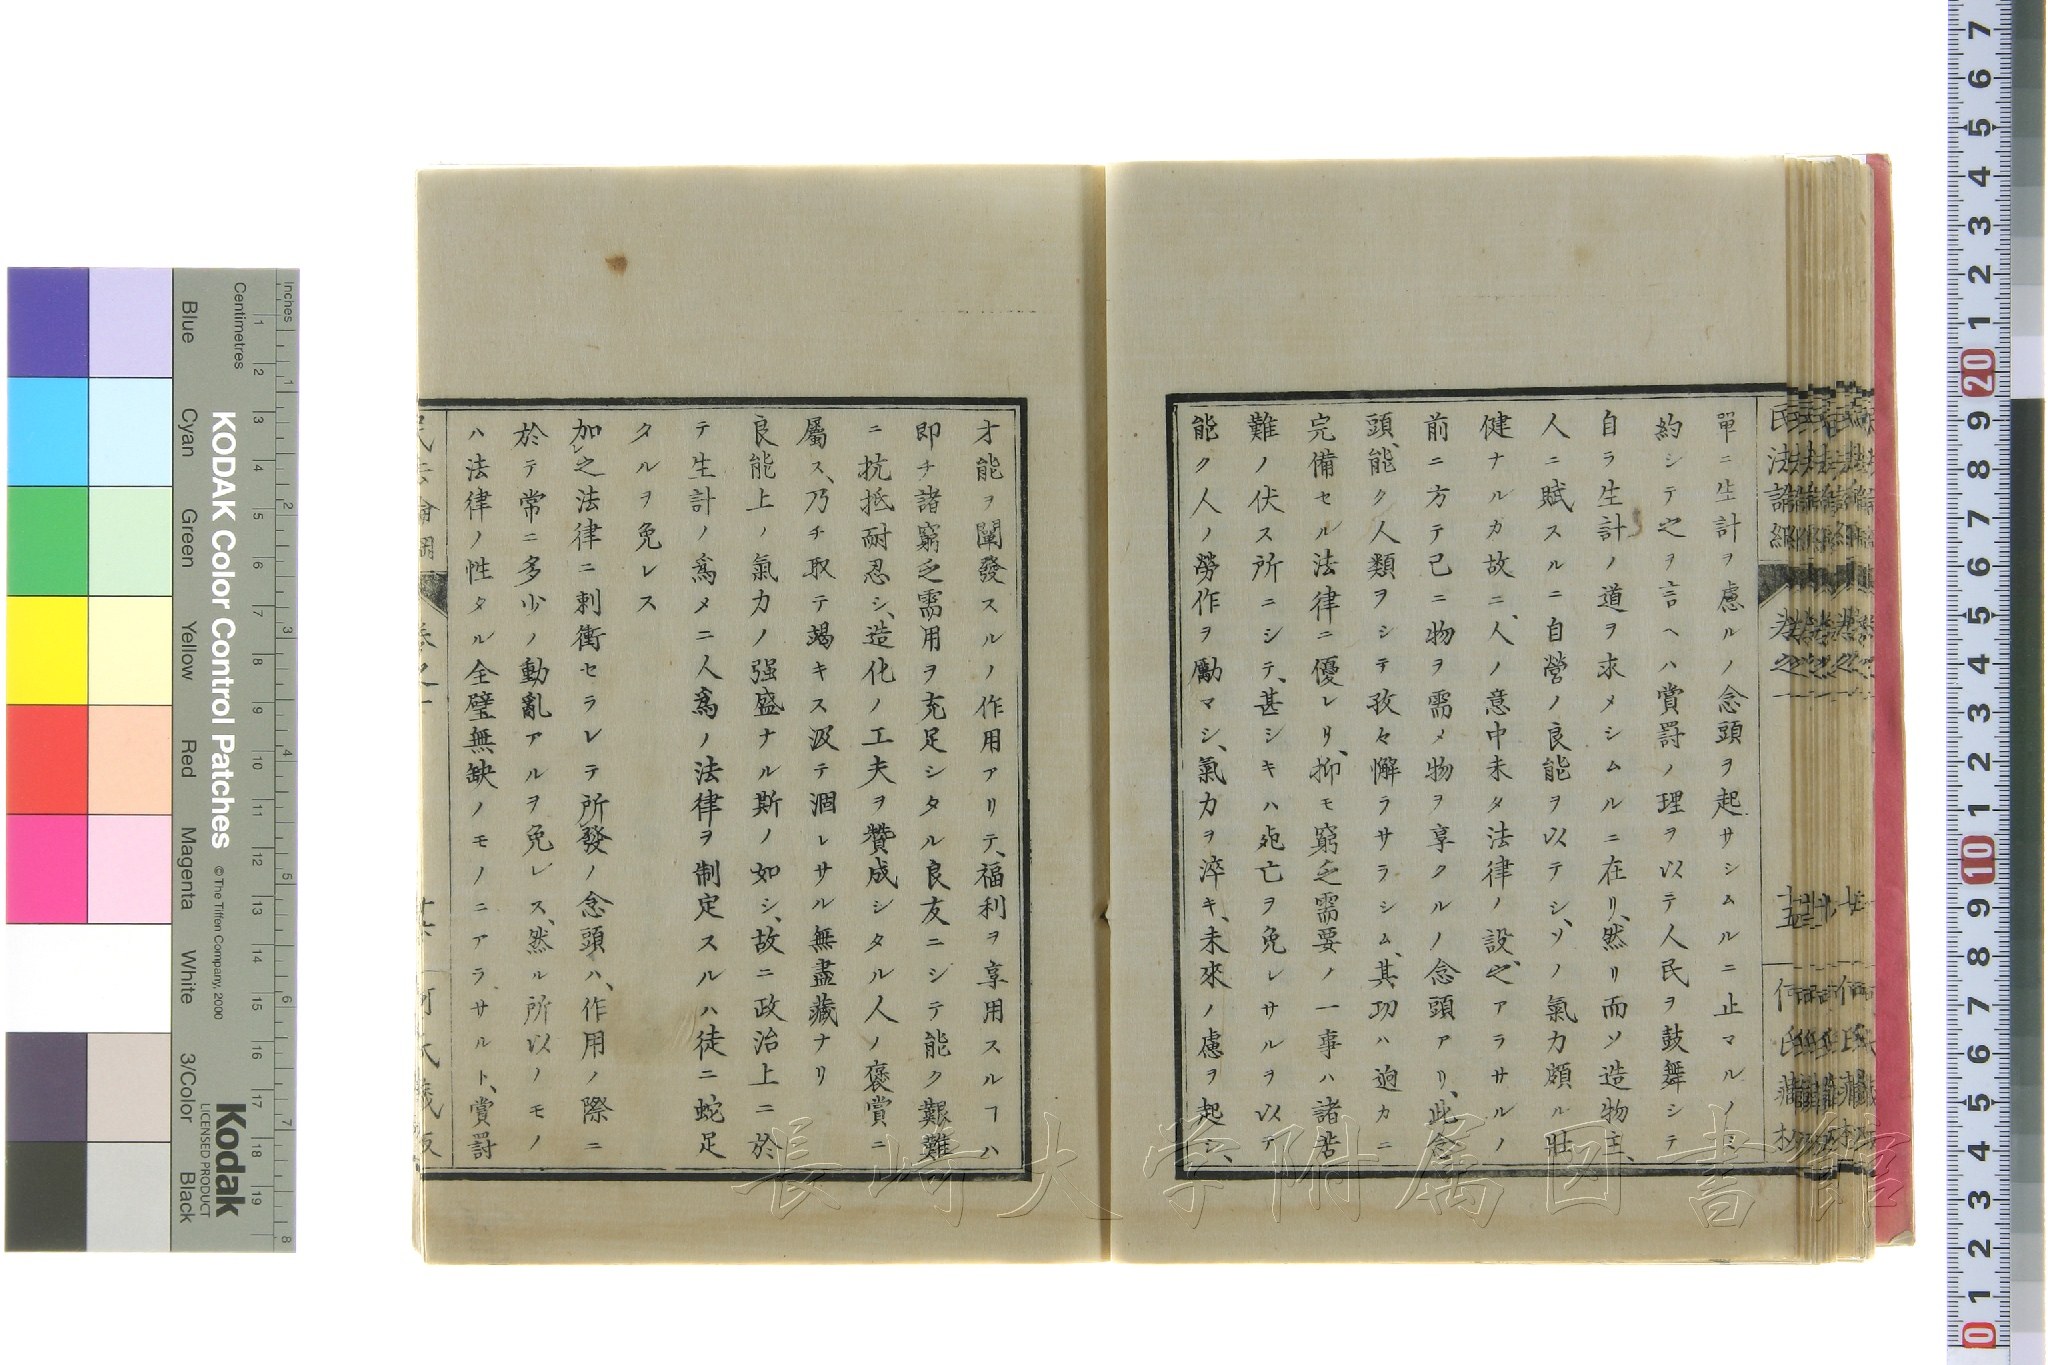 單ニ生計ヲ慮ルノ念頭ヲ起サシムルニ止マルノミ
約シテ之ヲ言ヘハ賞罰ノ理ヲ以テ人民ヲ鼓舞シテ
自ラ生計ノ道ヲ求メシムルニ在リ、然リ而ソ造物主、
人ニ賦スルニ自營ノ良能ヲ以テシ、ソノ氣力頗ル壯
健ナルカ故ニ、人ノ意中未タ法律ノ設、之アラサルノ
前ニ方テ已ニ物ヲ需メ物ヲ享クルノ念頭アリ、此念
頭、能ク人類ヲシテ孜々懈ラサラシム、其功ハ迥カニ
完備セル法律ニ優レリ、抑モ窮乏需要ノ一事ハ諸苦
難ノ伏ス所ニシテ、甚シキハ死亡ヲ免レサルヲ以テ
能ク人ノ勞作ヲ勵マシ、氣力ヲ淬キ、未來ノ慮ヲ起シ、
才能ヲ闡發スルノ作用アリテ、福利ヲ享用スルヿハ
即チ諸窮乏需用ヲ充足シタル良友ニシテ能ク艱難
ニ抗抵耐忍シ、造化ノ工夫ヲ贊成シタル人ノ褒賞ニ
屬ス、乃チ取テ竭キス汲テ涸レサル無盡藏ナリ
良能上ノ氣力ノ强盛ナル斯ノ如シ、故ニ政治上ニ於
テ生計ノ爲メニ人爲ノ法律ヲ制定スルハ徒ニ蛇足
タルヲ免レス
加之法律ニ刺衝セラレテ所發ノ念頭ハ、作用ノ際ニ
於テ常ニ多少ノ動亂アルヲ免レス、然ル所以ノモノ
ハ法律ノ性タル全璧無缺ノモノニアラサルト、賞罰
長崎大学附属図書館
KODAK Color Control Patches
© The Tiffen Company, 2000
Kodak
LICENSED PRODUCT
Inches
Centimetres
Blue
Cyan
Green
Yellow
Red
Magenta
White
3/Color
Black